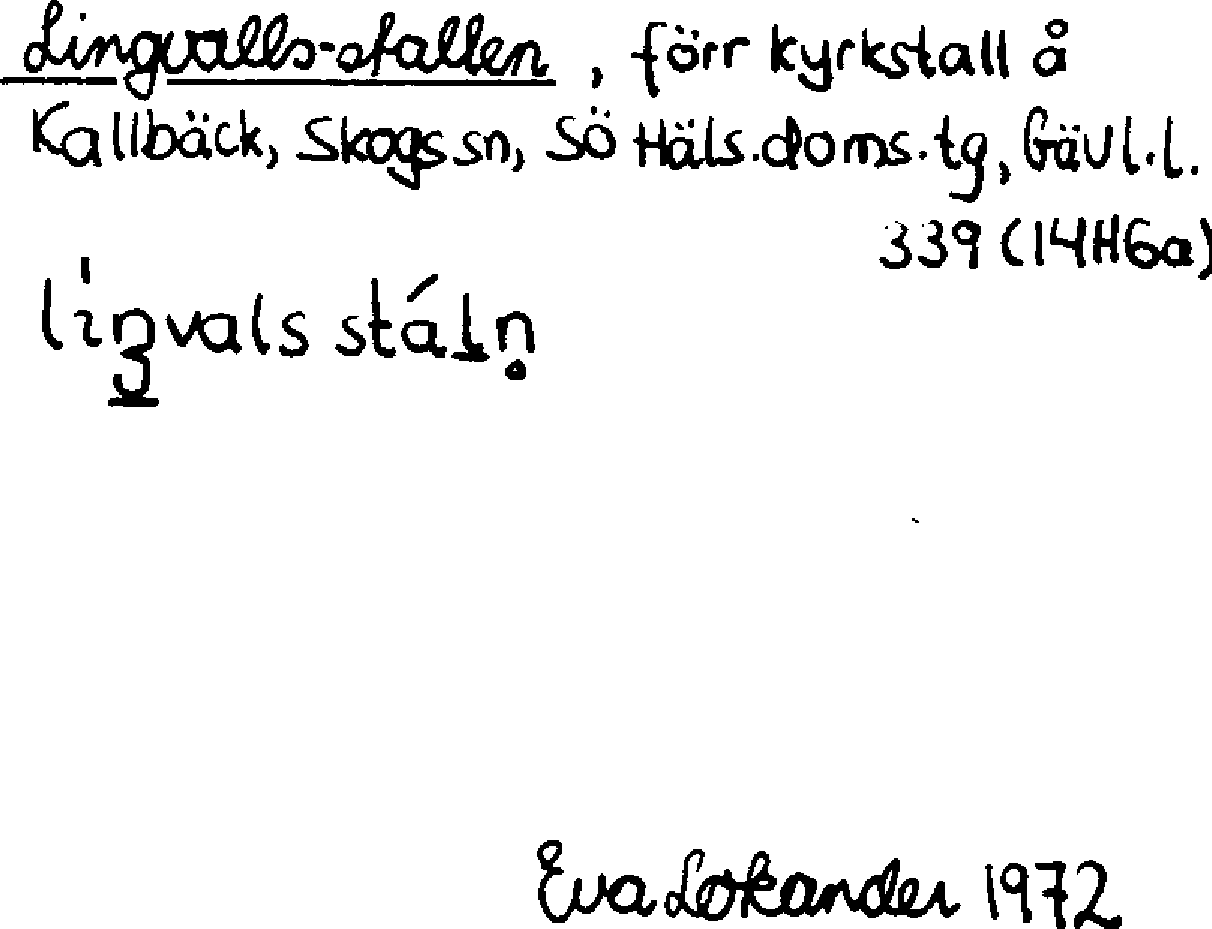 Lingvalls-stallen, förr kyrkstall å
Kallbäck, Skogs sn, Sö Häls. doms. tg, Gävl. l.
339 (14H6a)
lıŋvals stáln̥
Eva Lokander 1972